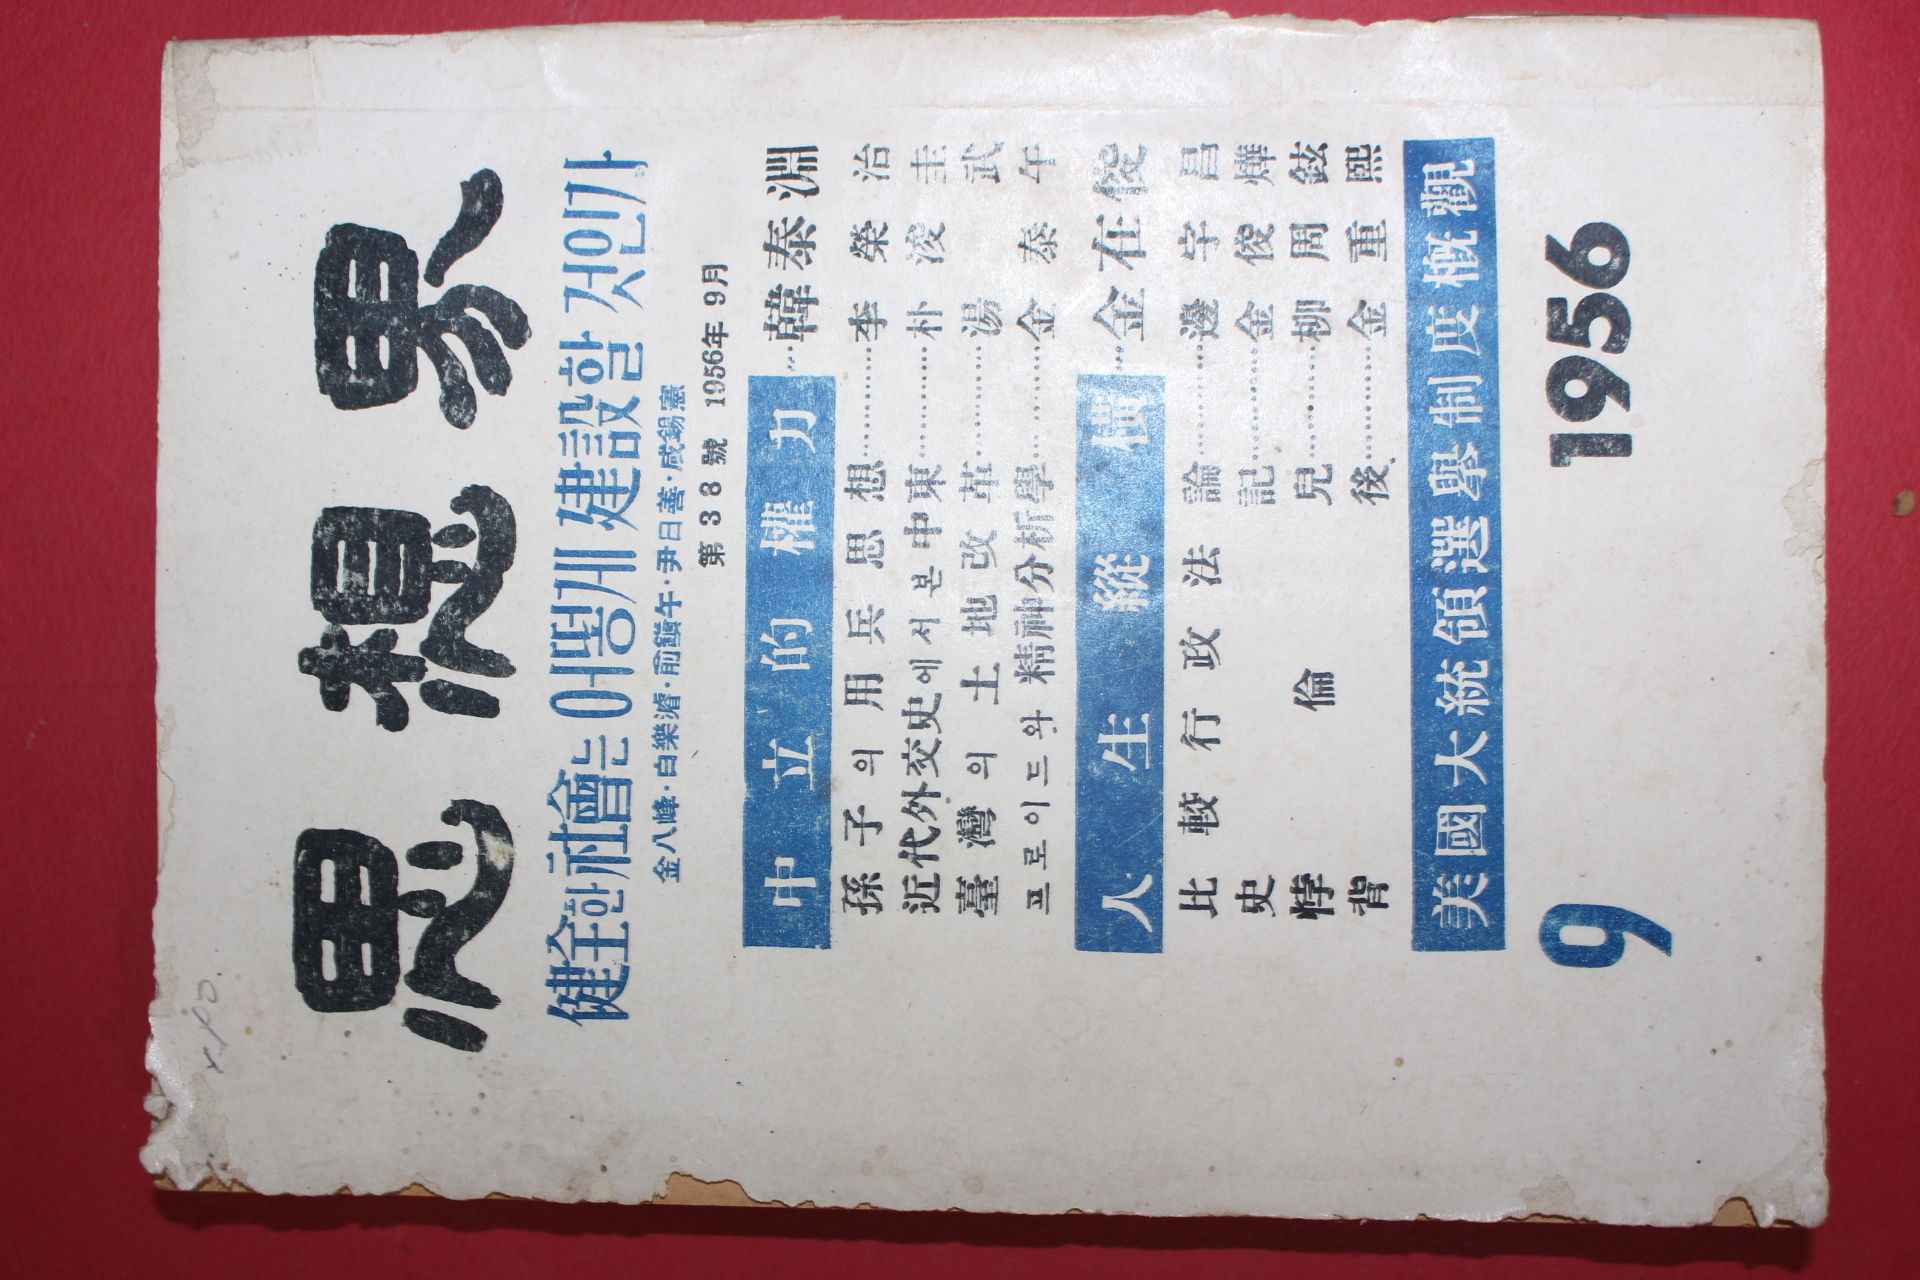 思想界
健全한社會는 어떻게 建設할 것인가
金八峰·白樂濬·兪鎭午·尹日善·咸錫憲
第38號 1956年 9月
中立的權力…韓泰淵
孫子의用兵思想…………李榮治
近代外交史에서본中東…………朴浚圭
臺灣의土地改革…………湯武
프로이드와精神分析學…………金泰午
人生縱橫…金在俊
比較行政法論…………邊宇昌
史記…………金俊燁
悖倫兒…………柳周鉉
背後…………金重熙
美國大統領選擧制度槪觀
9 1956